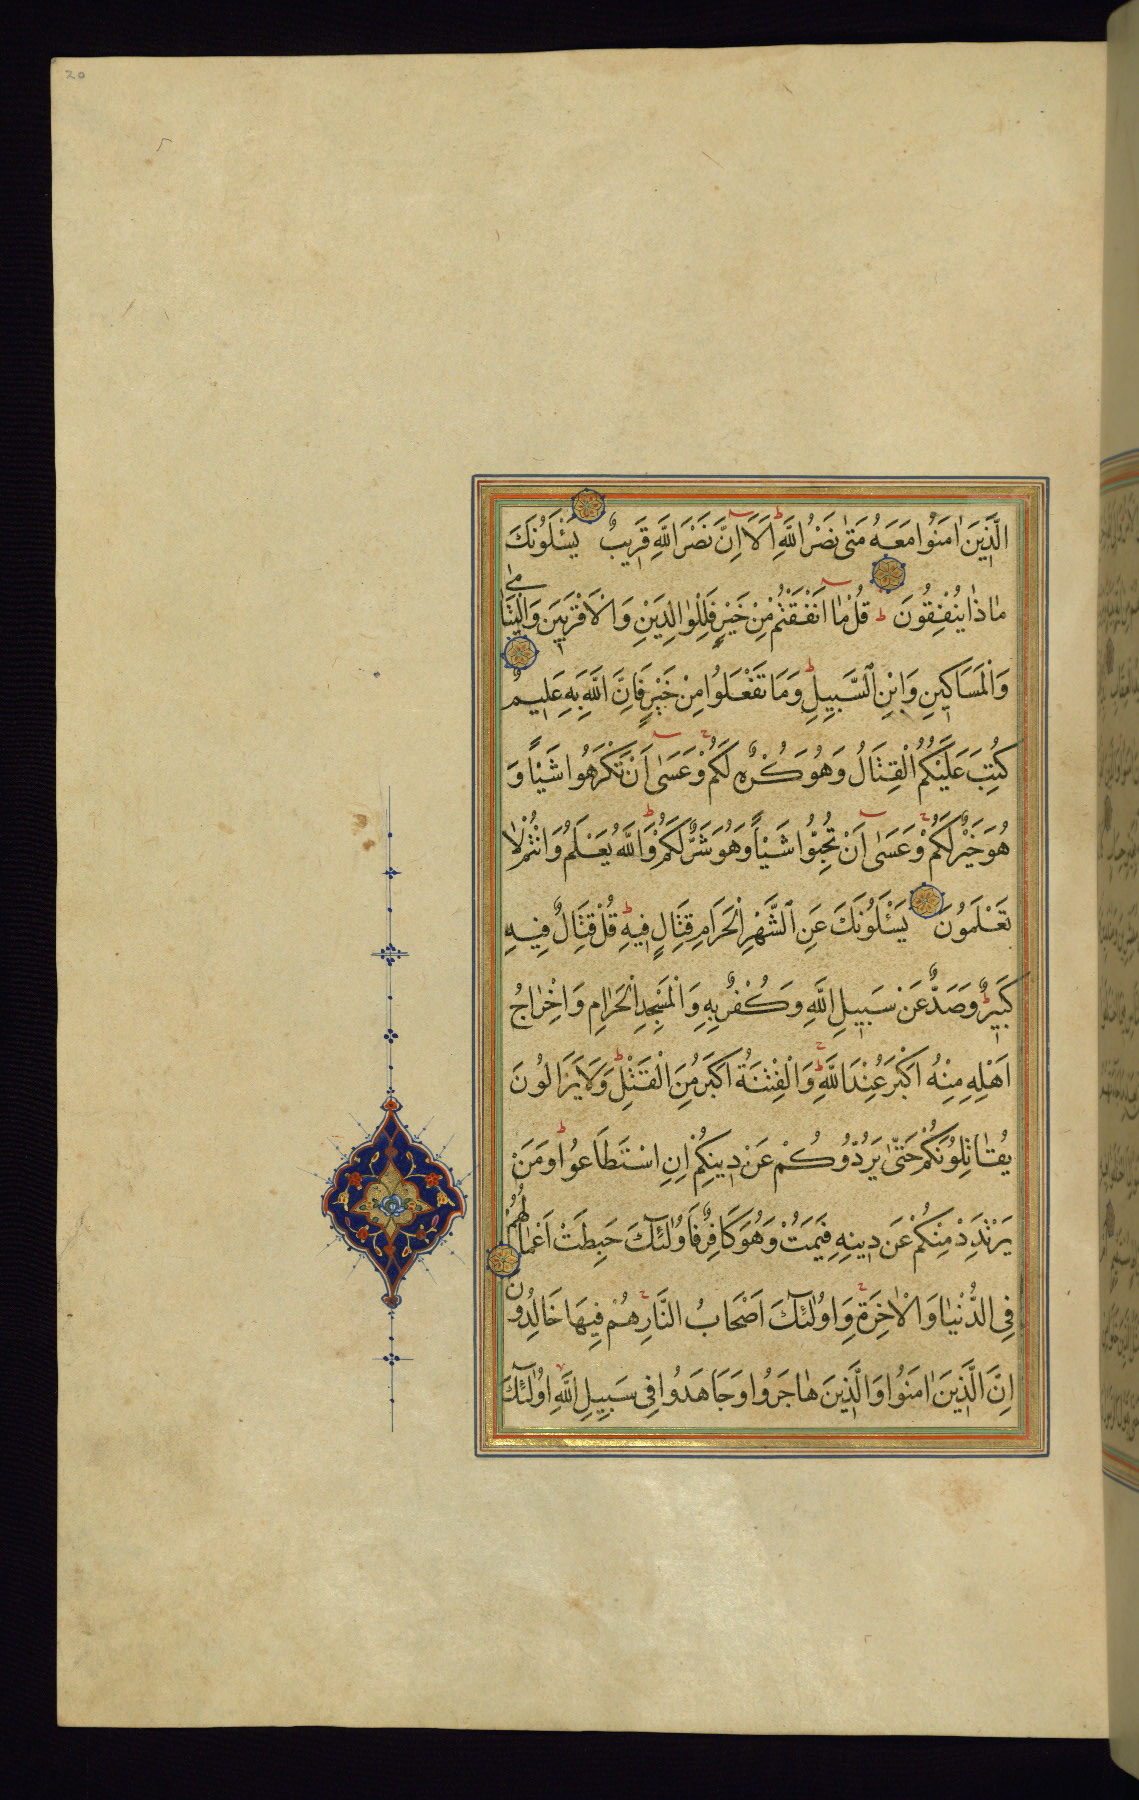 20
الَّذِينَ اٰمَنُوا مَعَهُ مَتٰى نَصْرُ اللّٰهِ اَلَا اِنَّ نَصْرَ اللّٰهِ قَرِيبٌ يَسْـَٔلُونَكَ
مَاذَا يُنْفِقُونَ قُلْ مَا اَنْفَقْتُمْ مِنْ خَيْرٍ فَلِلْوَالِدَيْنِ وَالْاَقْرَبِينَ وَالْيَتَامٰى
وَالْمَسَاكِينِ وَابْنِ السَّبِيلِ وَمَا تَفْعَلُوا مِنْ خَيْرٍ فَاِنَّ اللّٰهَ بِهِ عَلِيمٌ
كُتِبَ عَلَيْكُمُ الْقِتَالُ وَهُوَ كُرْهٌ لَكُمْ وَعَسٰى اَنْ تَكْرَهُوا شَيْئًا وَ
هُوَ خَيْرٌ لَكُمْ وَعَسٰى اَنْ تُحِبُّوا شَيْئًا وَهُوَ شَرٌّ لَكُمْ وَاللّٰهُ يَعْلَمُ وَاَنْتُمْ لَا
تَعْلَمُونَ يَسْـَٔلُونَكَ عَنِ الشَّهْرِ الْحَرَامِ قِتَالٍ فِيهِ قُلْ قِتَالٌ فِيهِ
كَبِيرٌ وَصَدٌّ عَنْ سَبِيلِ اللّٰهِ وَكُفْرٌ بِهِ وَالْمَسْجِدِ الْحَرَامِ وَاِخْرَاجُ
اَهْلِهِ مِنْهُ اَكْبَرُ عِنْدَ اللّٰهِ وَالْفِتْنَةُ اَكْبَرُ مِنَ الْقَتْلِ وَلَا يَزَالُونَ
يُقَاتِلُونَكُمْ حَتّٰى يَرُدُّوكُمْ عَنْ دِينِكُمْ اِنِ اسْتَطَاعُوا وَمَنْ
يَرْتَدِدْ مِنْكُمْ عَنْ دِينِهِ فَيَمُتْ وَهُوَ كَافِرٌ فَاُولٰئِكَ حَبِطَتْ اَعْمَالُهُمْ
فِي الدُّنْيَا وَالْاٰخِرَةِ وَاُولٰئِكَ اَصْحَابُ النَّارِ هُمْ فِيهَا خَالِدُونَ
اِنَّ الَّذِينَ اٰمَنُوا وَالَّذِينَ هَاجَرُوا وَجَاهَدُوا فِي سَبِيلِ اللّٰهِ اُولٰئِكَ